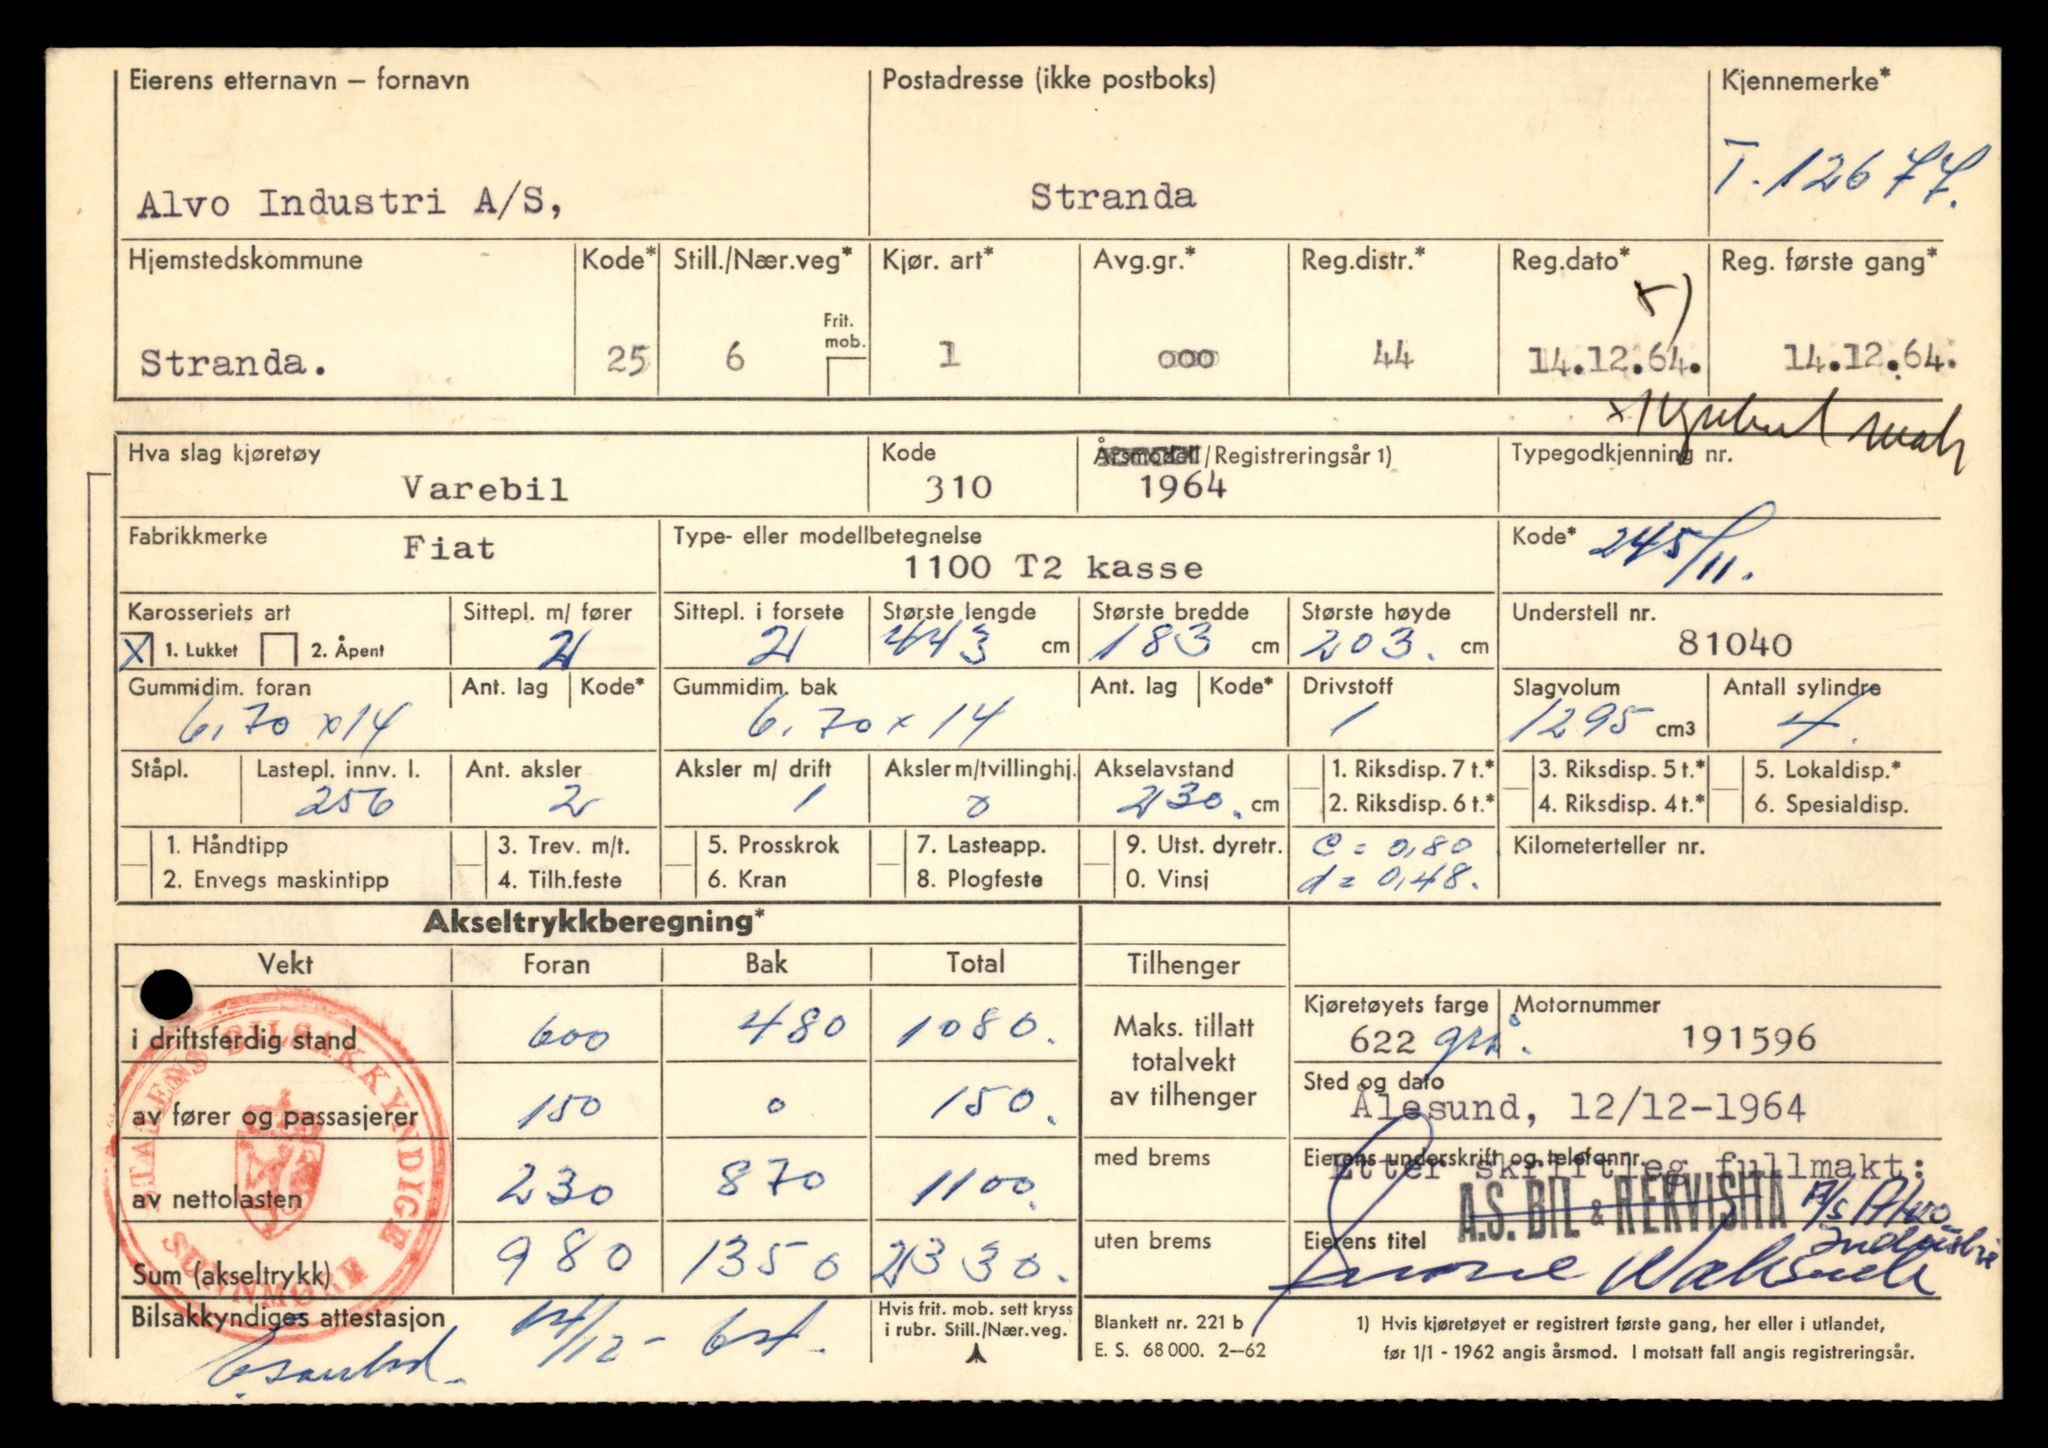 Eierens etternavn – fornavn Postadresse (ikke postboks) Kjennemerke*
Alvo Industri A/S, Stranda T. 12677.
Hjemstedskommune Kode* Still./Nær.veg* Kjør. art* Avg.gr.* Reg.distr.* Reg.dato* Reg. første gang*
x)
Frit. mob.
Stranda. 25 6 1 000 44 14.12.64. 14.12.64.
Hva slag kjøretøy Kode Årsmodell/Registreringsår 1) Typegodkjenning nr.
Varebil 310 1964
Fabrikkmerke Type- eller modellbetegnelse Kode*
Fiat 1100 T2 kasse 245/11.
Karosseriets art Sittepl. m/ fører Sittepl. i forsete Største lengde Største bredde Største høyde Understell nr.
X 1. Lukket 2. Åpent 2 2 443 cm 183 cm 203. cm 81040
Gummidim. foran Ant. lag Kode* Gummidim. bak Ant. lag Kode* Drivstoff Slagvolum Antall sylindre
6,70 x 14 6,70 x 14 1 1295 cm3 4.
Ståpl. Lastepl. innv. l. Ant. aksler Aksler m/ drift Aksler m/tvillinghj. Akselavstand 1. Riksdisp. 7 t.* 3. Riksdisp. 5 t.* 5. Lokaldisp.*
256 2 1 0 230. cm 2. Riksdisp. 6 t.* 4. Riksdisp. 4 t.* 6. Spesialdisp.
1. Håndtipp 3. Trev. m/t. 5. Prosskrok 7. Lasteapp. 9. Utst. dyretr. C = 0,80 Kilometerteller nr.
2. Envegs maskintipp 4. Tilh.feste 6. Kran 8. Plogfeste 0. Vinsj d = 0,48.
Akseltrykkberegning*
Vekt Foran Bak Total Tilhenger
i driftsferdig stand 600 480 1080.
Maks. tillatt totalvekt av tilhenger
Kjøretøyets farge Motornummer
622 grå. 191596
av fører og passasjerer 150 0 150.
Sted og dato
Ålesund, 12/12-1964
av nettolasten 230 870 1100.
med brems
Eierens underskrift og telefonnr.
Etter skriftleg fullmakt:
A.S. BIL & REKVISITA A/s Alvo Industri
Sum (akseltrykk) 980 1350 2330.
uten brems
Eierens titel
STATENS BILSAKKYNDIGE SUNNMØRE
Bilsakkyndiges attestasjon 14/12-64.
Hvis frit. mob. sett kryss
i rubr. Still./Nær.veg.
Blankett nr. 221 b
E. S. 68 000. 2–62
1) Hvis kjøretøyet er registrert første gang, her eller i utlandet,
før 1/1 - 1962 angis årsmod. I motsatt fall angis registreringsår.